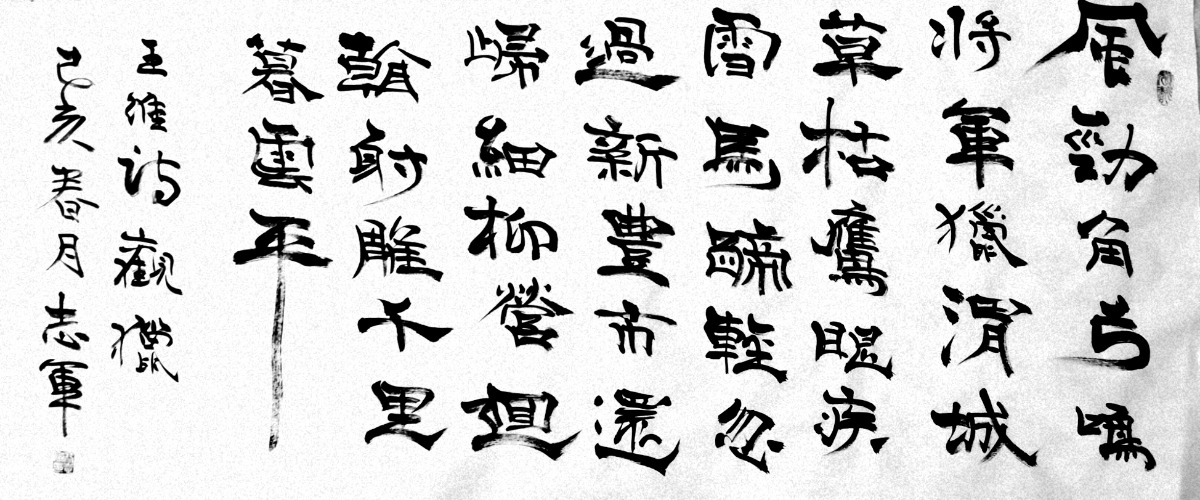 風勁角弓鳴
将軍獵渭城
草枯鷹眼疾
雪馬蹄輕忽
過新豐市還
歸細柳營迴
看射雕千里
暮雲平
王維詩觀獵
己亥春月志軍